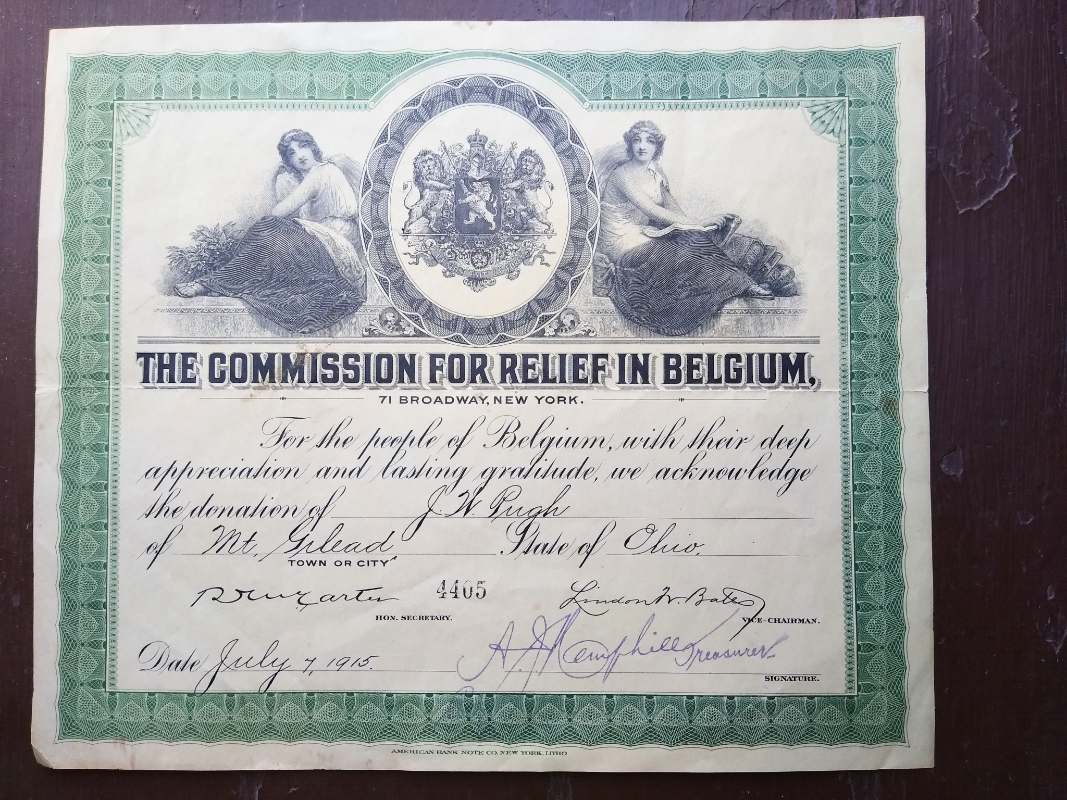 THE COMMISSION FOR RELIEF IN BELGIUM,
71 BROADWAY, NEW YORK.
For the people of Belgium, with their deep
appreciation and lasting gratitude, we acknowledge
the donation of J. W. Pugh
of Mt. Gilead, State of Ohio.
TOWN OR CITY
4405 Lindon W. Bates
HON. SECRETARY. VICE-CHAIRMAN.
Date July 7, 1915. A. J. Hemphill Treasurer.
SIGNATURE.
AMERICAN BANK NOTE CO. NEW YORK. LITHO